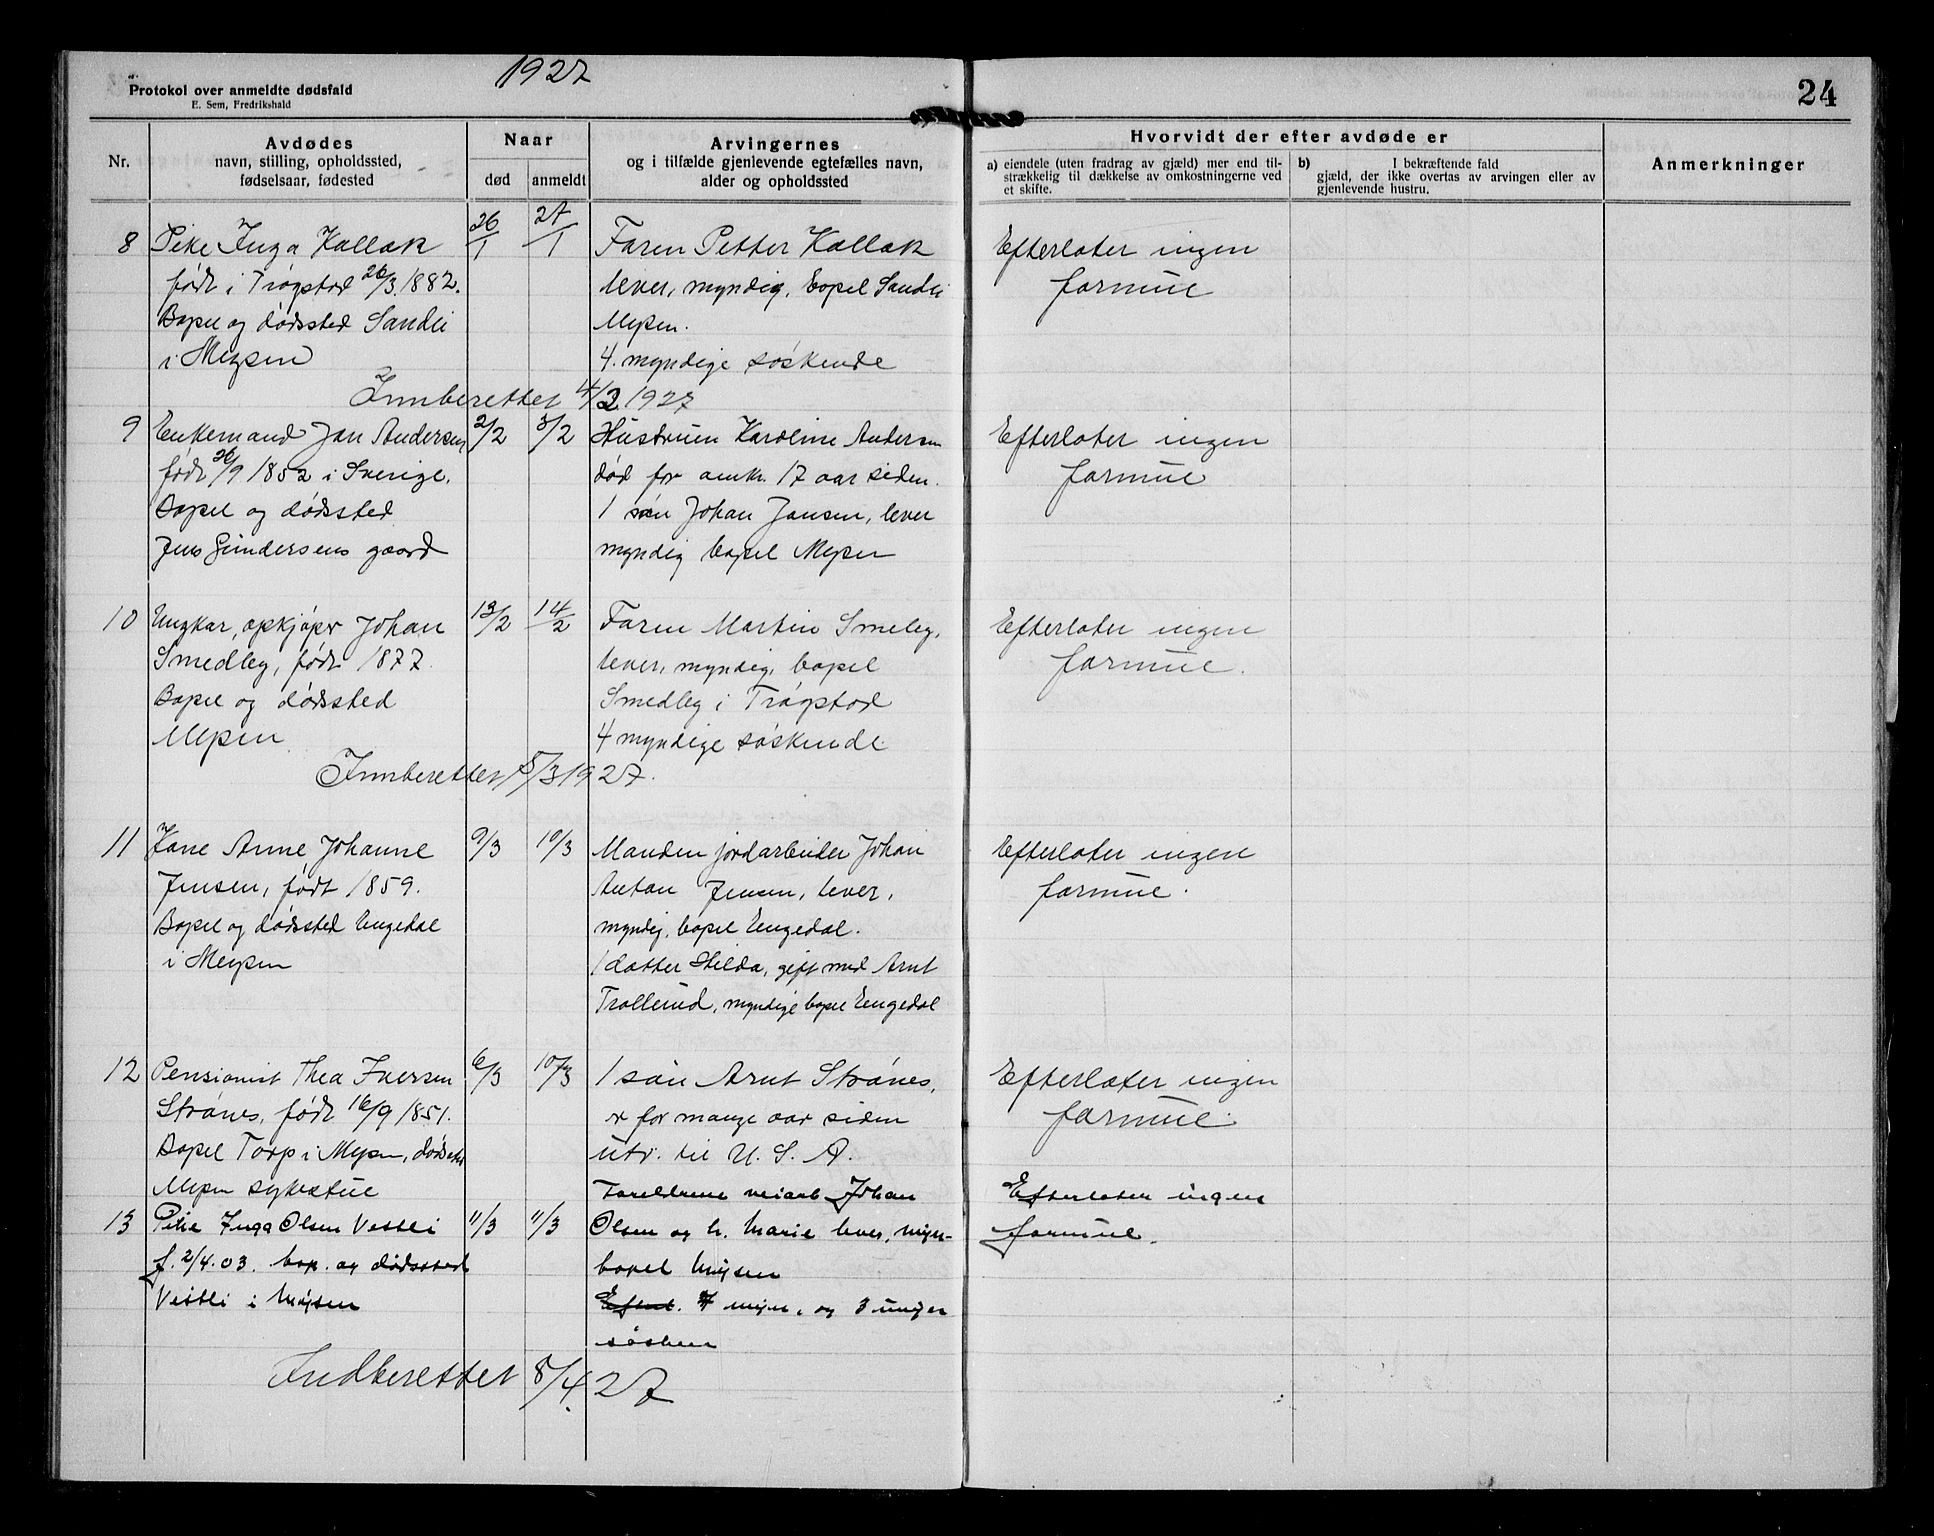 1927
Protokol over anmeldte dødsfald
E. Sem, Fredrikshald
24
Nr.
Avdødes
navn, stilling, opholdssted,
fødselsaar, fødested
Naar
død
anmeldt
Arvingernes
og i tilfælde gjenlevende egtefælles navn,
alder og opholdssted
Hvorvidt der efter avdøde er
a) eiendele (uten fradrag av gjæld) mer end til-
strækkelig til dækkelse av omkostningerne ved
et skifte.
b) I bekræftende fald
gjæld, der ikke overtas av arvingen eller av
gjenlevende hustru.
Anmerkninger
8
Pike Inga Kallak
født i Trøgstad 26/3.1882.
Bopel og dødssted Sandli
i Mysen
26/1
27/1
Faren Petter Kallak
lever, myndig, bopel Sandli
Mysen.
4. myndige søskende
Efterlater ingen
formue
Innberettet 4/2 1927
9
Enkemand Jan Andersen
født 26/9 1852 i Sverige.
Bopel og dødssted
Jens Gundersens gaard
2/2
3/2
Hustruen Karoline Andersen
død for omkr. 17 aar siden.
1 søn Johan Jansen, lever
myndig bopel Mysen
Efterlater ingen
formue
10
Ungkar, opkjøper Johan
Smedby, født 1877.
Bopel og dødssted
Mysen
13/2
14/2
Faren Martin Smeby,
lever, myndig, bopel
Smedby i Trøgstad
4 myndige søskende
Efterlater ingen
formue.
Innberettet 5/3 1927.
11
Kone Anne Johanne
Jensen, født 1859.
Bopel og dødssted Engedal
i Mysen
9/3
10/3
Manden jordarbeider Johan
Anton Jensen, lever,
myndig, bopel Engedal.
1 datter Hilda, gift med Arnt
Trollerud, myndige bopel Engedal
Efterlater ingen
formue.
12
Pensionist Thea Iversen
Strønes, født 16/9 1851.
Bopel Torp i Mysen, dødssted
Mysen sykestue
6/3
10/3
1 søn Arnt Strønes,
er for mange aar siden
utv. til U. S. A.
Efterlater ingen
formue.
13
Pike Inga Olsen Vestli
f. 2/4.03. bop. og dødssted
Vestli i Mysen
11/3
11/3
Foreldrene veiarb Johan
Olsen og h. Marie lever, myn-
bopel Mysen
Efterl. 7 myn. og 3 umyn
søsken
Efterlater ingen
formue.
Indberettet 5/4.27